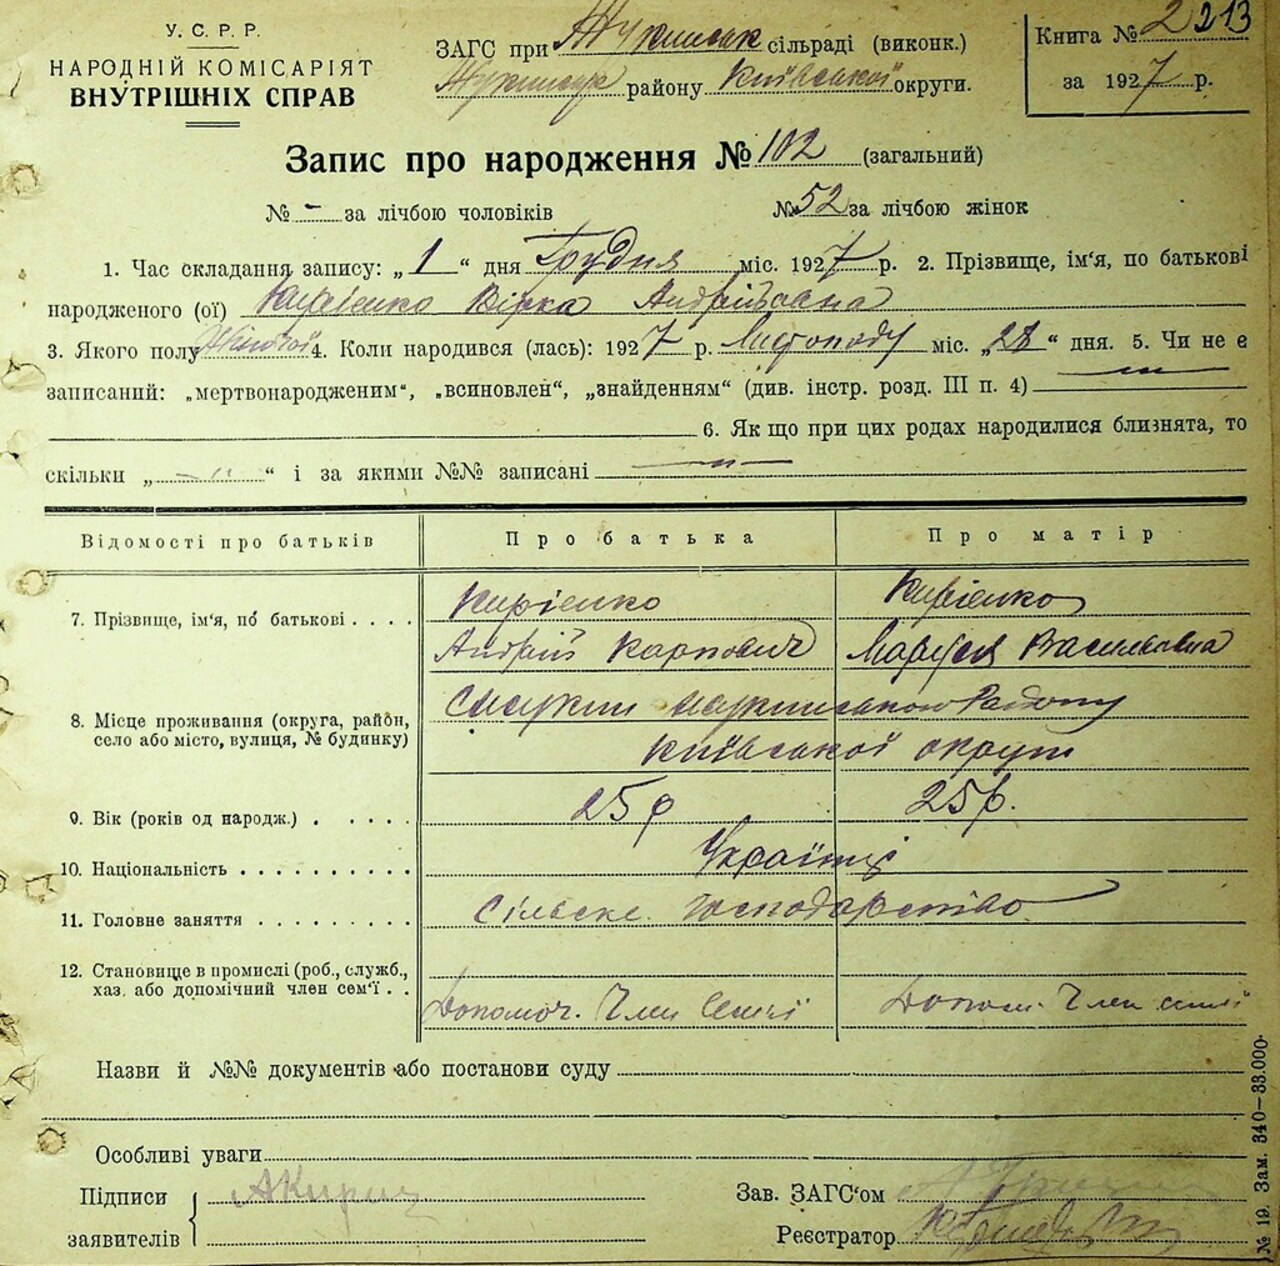 У. С. Р. Р.
НАРОДНІЙ КОМІСАРІЯТ
ВНУТРІШНІХ СПРАВ
ЗАГС при Жукинськ сільраді (виконк.)
району Київської округи.
Книга № 2 213
за 1927 р.
Запис про народження № 102 (загальний)
№ - за лічбою чоловіків № 52 за лічбою жінок
1. Час складання запису: „1“ дня Грудня міс. 1927 р. 2. Прізвище, ім'я, по батькові
народженого (ої) Кирієнко Вірка Андріївна
3. Якого полу Жіночої 4. Коли народився (лась): 1927 р. Листопаду міс. „28“ дня. 5. Чи не є
записаний: „мертвонародженим“, „всиновлен“, „знайденням“ (див. інстр. розд. III п. 4) — „ —
6. Як що при цих родах народилися близнята, то
скільки „ — „ — “ і за якими №№ записані — „ —
Відомості про батьків Про батька Про матір
7. Прізвище, ім'я, по батькові . . . .
Кирієнко Кирієнко
Андрій Карпович Маруся Василівна
8. Місце проживання (округа, район,
село або місто, вулиця, № будинку)
Району
Київської округи
9. Вік (років од народж.) . . . . . 25 р 25 р.
10. Національність . . . . . . . . . . Українці
11. Головне заняття . . . . . . . . . Сільське господарство
12. Становище в промислі (роб., служб.,
хаз. або допомічний член сем'ї . .
Допомоч. Член Семї Допом. Член семї
Назви й №№ документів або постанови суду
Особливі уваги
Підписи
заявителів
Зав. ЗАГС'ом
Реєстратор
№ 19. Зам. 340—33.000